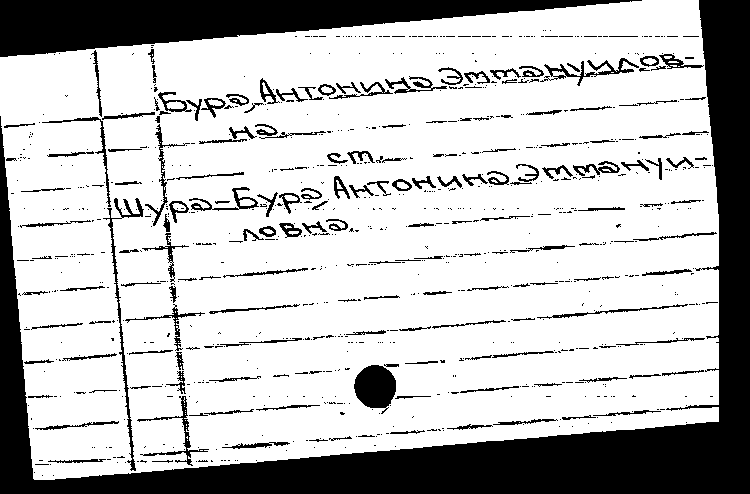 Бура, Антонина Эммануилов-
на.
ст.
Шура-Бура, Антонина Эммануи-
ловна.